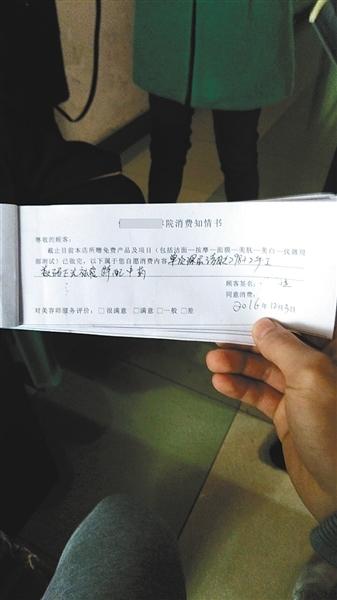 院消费知情书
尊敬的顾客：
截止目前本店所赠免费产品及项目（包括洁面—按摩—面膜—美肤—美白—仪器局
部测试）已做完，以下属于您自愿消费内容
顾客签名：
同意消费：
2016年12月3日
对美容师服务评价：□很满意 □满意 □一般 □差